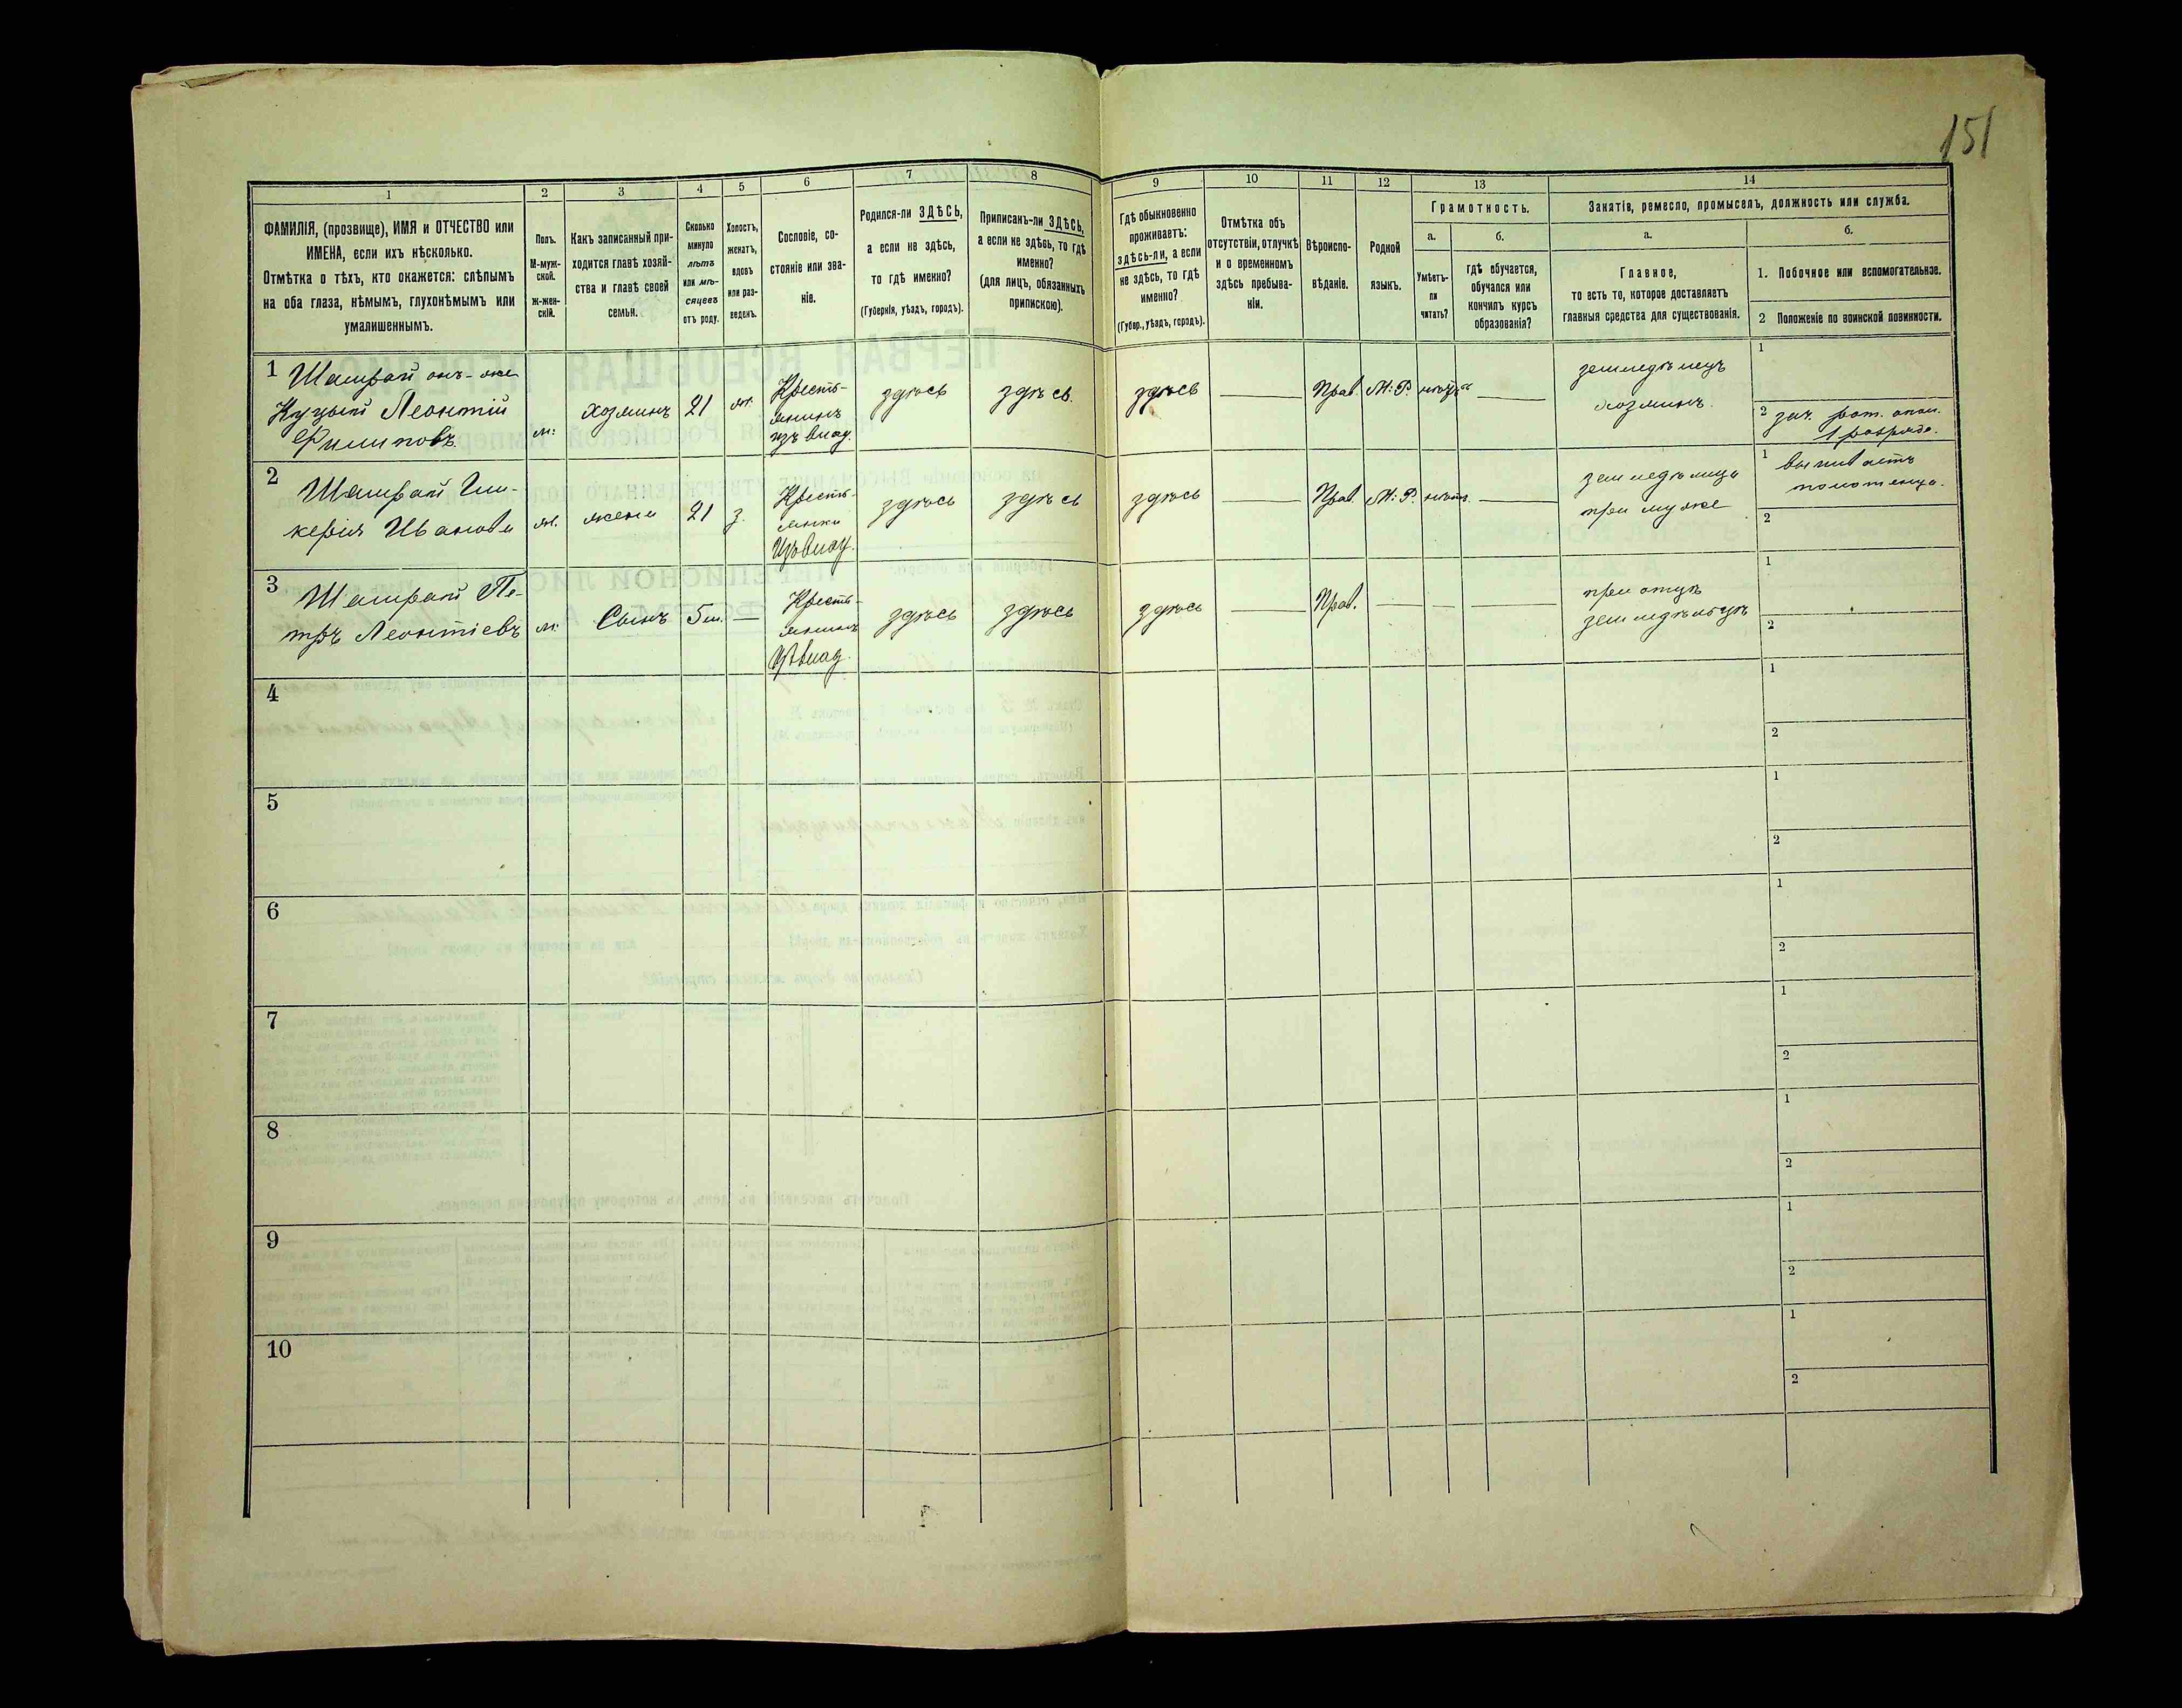 151
1
2
3
4
5
6
7
8
9
10
11
12
13
14
ФАМИЛІЯ, (прозвище), ИМЯ и ОТЧЕСТВО или
ИМЕНА, если ихъ нѣсколько.
Отмѣтка о тѣхъ, кто окажется: слѣпымъ
на оба глаза, нѣмымъ, глухонѣмымъ или
умалишеннымъ.
Полъ.
М-муж-
ской.
ж-жен-
скій.
Какъ записанный при-
ходится главѣ хозяй-
ства и главѣ своей
семьи.
Сколько
минуло
лѣтъ
или мѣ-
сяцевъ
отъ роду.
Холостъ,
женатъ,
вдовъ
или раз-
веденъ.
Сословіе, со-
стояніе или зва-
ніе.
Родился-ли ЗДѢСЬ,
а если не здѣсь,
то гдѣ именно?
(Губернія, уѣздъ, городъ).
Приписанъ-ли ЗДѢСЬ,
а если не здѣсь, то гдѣ
именно?
(для лицъ, обязанныхъ
припискою).
Гдѣ обыкновенно
проживаетъ:
здѣсь-ли, а если
не здѣсь, то гдѣ
именно?
(Губер., уѣздъ, городъ).
Отмѣтка объ
отсутствіи, отлучкѣ
и о временномъ
здѣсь пребыва-
ніи.
Вѣроиспо-
вѣданіе.
Родной
языкъ.
Грамотность.
а.
б.
Умѣетъ-
ли
читать?
гдѣ обучается,
обучался или
кончилъ курсъ
образованія?
Занятія, ремесло, промыселъ, должность или служба.
а.
б.
Главное,
то есть то, которое доставляетъ
главныя средства для существованія.
1. Побочное или вспомогательное.
2 Положеніе по воинской повинности.
1 Шамрай онъ-же
Куцый Леонтій
Филиповъ
м:
хозяинъ
21
ж.
Кресть-
янинъ
изъ влад.
здѣсь
здѣсь
здѣсь
Прав.
М:Р.
нѣтъ
земледѣлецъ
хозяинъ.
1
2 зач. рат. опол.
1 разряда.
2 Шамрай Гли-
керія Иванова
ж.
жена
21
з.
Кресть-
янка
Изъ влад.
здѣсь
здѣсь
здѣсь
Прав.
М:Р.
нѣтъ
земледѣлица
при муже
1
полотенца.
2
3 Шамрай Пе-
тръ Леонтіевъ
м.
Сынъ
5 м.
Кресть-
янинъ
Изъ влад.
здѣсь
здѣсь
здѣсь
Прав.
при отцѣ
земледѣльцѣ
1
2
4
1
2
5
1
2
6
1
2
7
1
2
8
1
2
9
1
2
10
1
2